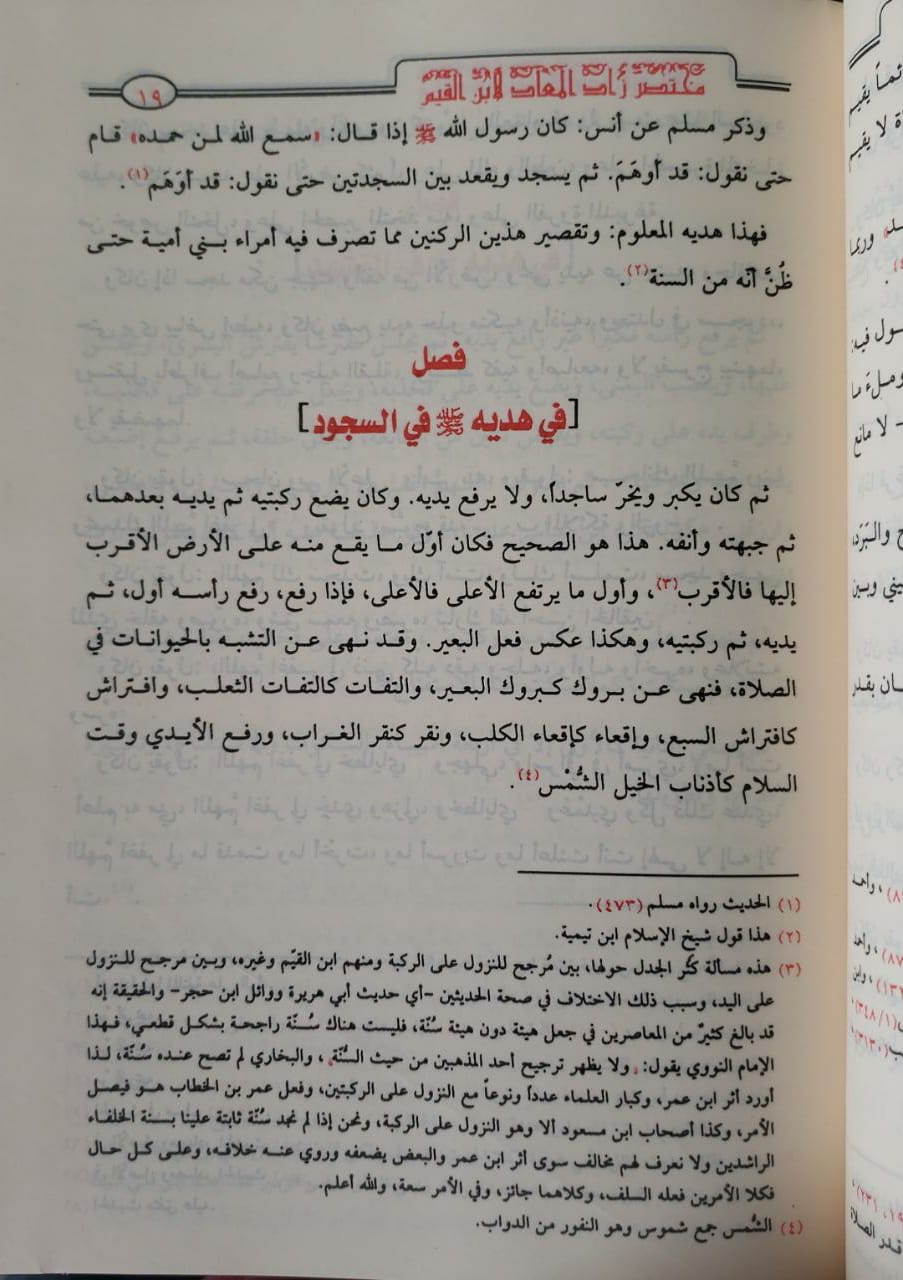 مختصر زاد المعاد لابن القيم
١٩
وذكر مسلم عن أنس: كان رسول الله ﷺ إذا قال: «سمع الله لمن حمده» قام
حتى نقول: قد أوهَمَ. ثم يسجد ويقعد بين السجدتين حتى نقول: قد أوَهَم(١).
فهذا هديه المعلوم: وتقصير هذين الركنين مما تصرف فيه أمراء بني أمية حتى
ظُنَّ أنّه من السنة(٢).
فصل
[في هديه ﷺ في السجود]
ثم كان يكبر ويخرّ ساجداً، ولا يرفع يديه. وكان يضع ركبتيه ثم يديه بعدهما،
ثم جبهته وأنفه. هذا هو الصحيح فكان أوّل ما يقع منه على الأرض الأقرب
إليها فالأقرب(٣)، وأول ما يرتفع الأعلى فالأعلى، فإذا رفع، رفع رأسه أول، ثم
يديه، ثم ركبتيه، وهكذا عكس فعل البعير. وقد نهى عن التشبه بالحيوانات في
الصلاة، فنهى عن بروك كبروك البعير، والتفات كالتفات الثعلب، وافتراش
كافتراش السبع، وإقعاء كإقعاء الكلب، ونقر كنقر الغراب، ورفع الأيدي وقت
السلام كأذناب الخيل الشُّمْس(٤).
(١) الحديث رواه مسلم (٤٧٣).
(٢) هذا قول شيخ الإسلام ابن تيمية.
(٣) هذه مسألة كثُر الجدل حولها، بين مُرجح للنزول على الركبة ومنهم ابن القيّم وغيره، وبين مرجح للنزول
على اليد، وسبب ذلك الاختلاف في صحة الحديثين -أي حديث أبي هريرة ووائل ابن حجر- والحقيقة إنه
قد بالغ كثيرٌ من المعاصرين في جعل هيئة دون هيئة سُنّة، فليست هناك سُنّة راجحة بشكل قطعي، فهذا
الإمام النووي يقول: «ولا يظهر ترجيح أحد المذهبين من حيث السُّنّة»، والبخاري لم تصح عنده سُنّة، لذا
أورد أثر ابن عمر، وكبار العلماء عدداً ونوعاً مع النزول على الركبتين، وفعل عمر بن الخطاب هو فيصل
الأمر، وكذا أصحاب ابن مسعود ألا وهو النزول على الركبة، ونحن إذا لم نجد سُنّة ثابتة علينا بسنة الخلفاء
الراشدين ولا نعرف لهم مخالف سوى أثر ابن عمر والبعض يضعفه وروي عنه خلافه، وعلى كل حال
فكلا الأمرين فعله السلف، وكلاهما جائز، وفي الأمر سعة، والله أعلم.
(٤) الشُّمس جمع شموس وهو النفور من الدواب.